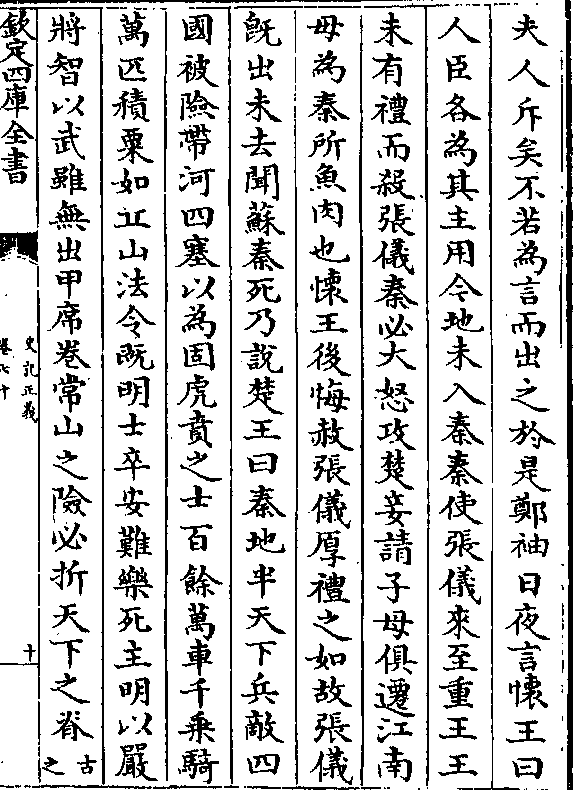 夫人斥矣不若為言而出之於是鄭袖日夜言懷王曰
人臣各為其主用今地未入秦秦使張儀來至重王王
未有禮而殺張儀秦必大怒攻楚妾請子母俱遷江南
毋為秦所魚肉也懷王後悔赦張儀厚禮之如故張儀
旣出未去聞蘇秦死乃說楚王曰秦地半天下兵敵四
國被險帶河四塞以為固虎賁之士百餘萬車千乘騎
萬匹積粟如丘山法令旣明士卒安難樂死主明以嚴
將智以武雖無出甲席卷常山之險必折天下之脊古之
欽定四庫全書
史記正義
卷七十
十